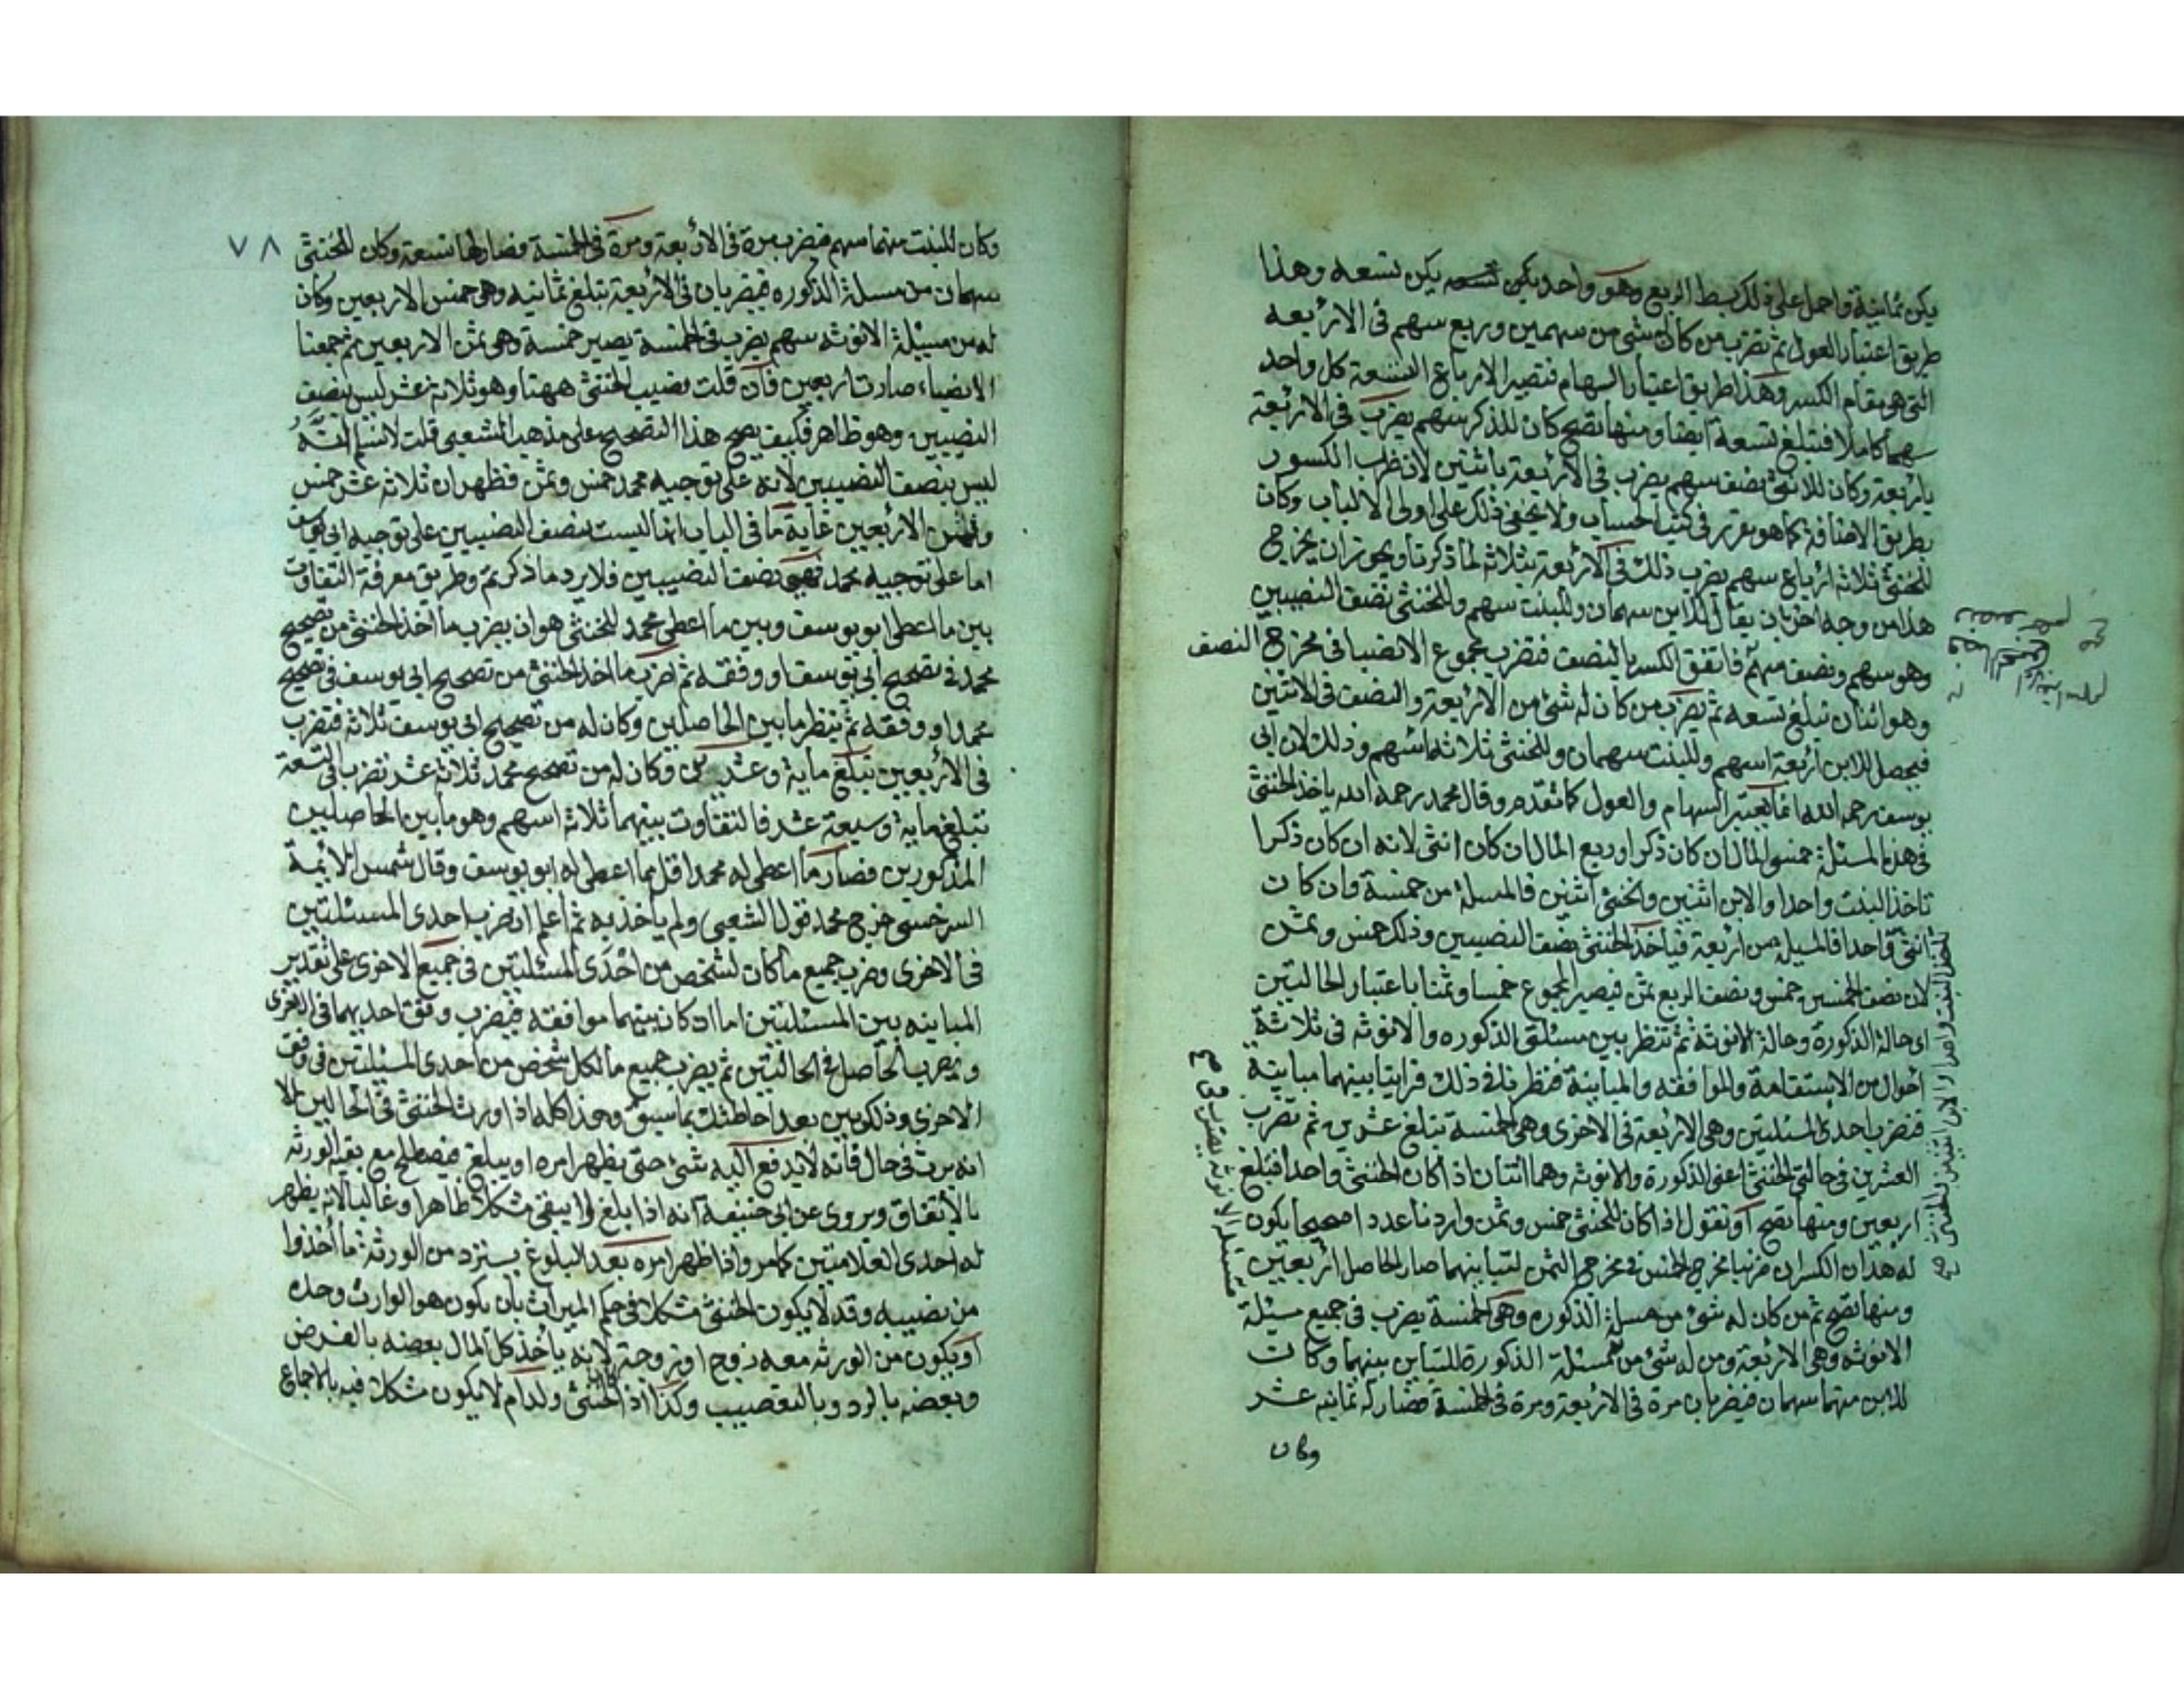 يكن ثمانية واحمل على ذلك بسط الربع وهو واحد يكن تسعه وهذا
طريق اعتبار العول ثم تضرب من كان له شئ من سهمين وربع سهم فى الاربعه
التى هى مقام الكسر وهذا طريق اعتبار السهام فتصير الارباع التسعة كل واحد
سهما كاملا فتبلغ تسعة ايضا ومنها تصح كان للذكر سهم يضرب فى الاربعة
باربعة وكان للانثى نصف سهم يضرب فى الاربعة باثنين لان ضرب الكسور
بطريق الاضافة كما هو مقرر فى كتب الحساب ولا يخفى ذلك على اولى الالباب وكان
للخنثى ثلاثة ارباع سهم يضرب ذلك فى الاربعة بثلاثة لما ذكرنا ويجوز ان يخرج
هذا من وجه اخر بان يقال للابن سهمان وللبنت سهم وللخنثى نصف النصيبين
وهو سهم ونصف سهم فاتفق الكسر بالنصف فتضرب مجموع الانصبا فى مخرج النصف
وهو اثنان تبلغ تسعه ثم تضرب من كان له شئ من الاربعة والنصف فى الاثنين
فيحصل للابن اربعة اسهم وللبنت سهمان وللخنثى ثلاثة اسهم وذلك لان ابى
يوسف رحمه الله انما يعتبر السهام والعول كما تقدم وقال محمد رحمه الله ياخذ الخنثى
فى هذه المسئلة خمسى المال ان كان ذكرا وربع المال ان كان انثى لانه ان كان ذكرا
تاخذ البنت واحدا والابن اثنين والخنثى اثنين فالمسئلة من خمسة وان كانت
انثى واحدا فالمسيلة من اربعة فياخذ الخنثى نصف النصيبين وذلك خمس وثمن
لان نصف الخمسين خمس ونصف الربع ثمن فيصير المجموع خمسا وثمنا باعتبار الحالتين
اى حالة الذكورة وحالة الانوثة ثم تنظر بين مسئلتى الذكوره والانوثه فى ثلاثة
احوال من الاستقامة والموافقه والمباينة فنظرنا فى ذلك فراينا بينهما مباينة
فتضرب احدى المسئلتين وهى الاربعة فى الاخرى وهى الخمسة تبلغ عشرين ثم تضرب
العشرين فى حالتى الخنثى اعنى الذكورة والانوثه وهما اثنتان اذا كان الخنثى واحدا فتبلغ
اربعين ومنها تصح او نقول اذا كان للخنثى خمس وثمن واردنا عددا صحيحا يكون
له هذان الكسران ضربنا مخرج الخمس فى مخرج الثمن لتباينهما صار الحاصل اربعين
ومنها تصح ثم من كان له شئ من مسئلة الذكوره وهى الخمسة يضرب فى جميع مسئلة
الانوثه وهى الاربعة ومن له شئ من مسئلة الذكورة للتباين بينهما وكانت
للابن منهما سهمان فيضربان مرة فى الاربعة ومرة فى الخمسة فصار له ثمانيه عشر
وكان
تاخذ البنت واحدا والابن اثنين والخنثى صح
مسئلة الانوثه يضرب فى صح
٧٨
وكان للبنت منهما سهم فيضرب مرة فى الاربعة ومرة فى الخمسة فصار لها تسعة وكان للخنثى
سهمان من مسلة الذكوره فيضربان فى الاربعة تبلغ ثمانيه وهى خمس الاربعين وكان
له من مسيلة الانوثه سهم يضرب فى الخمسة يصير خمسة وهى ثمن الاربعين ثم جمعنا
الانصباء صارت اربعين فان قلت نصيب الخنثى ههنا وهو ثلاثة عشر ليس بنصف
النصيبين وهو ظاهر فكيف يصح هذا التصحيح على مذهب الشعبى قلت لا نسلم انه
ليس بنصف النصيبين لانه على توجيه محمد خمس وثمن فظهر ان ثلاثة عشر خمس
وثمن الاربعين غاية ما فى الباب انها ليست بنصف النصيبين على توجيه ابى يوسف
اما على توجيه محمد فهى نصف النصيبين فلا يرد ما ذكرتم وطريق معرفة التفاوت
بين ما اعطى ابو يوسف وبين ما اعطى محمد للخنثى هو ان يضرب ما اخذ الخنثى من تصحيح
محمد فى تصحيح ابى يوسف او وفقه ثم تضرب ما اخذ الخنثى من تصحيح ابى يوسف فى تصحيح
محمد او وفقه ثم ينظر ما بين الحاصلين وكان له من تصحيح ابى يوسف ثلاثة فتضرب
فى الاربعين تبلغ ماية وعشرين وكان له من تصحيح محمد ثلاثة عشر تضرب فى التسعة
تبلغ ماية وسبعة عشر فالتفاوت بينهما ثلاثة اسهم وهو ما بين الحاصلين
المذكورين فصار ما اعطى له محمد اقل مما اعطى له ابو يوسف وقال شمس الائمة
السرخسى خرج محمد قول الشعبى ولم ياخذ به ثم اعلم ان ضرب احدى المسئلتين
فى الاخرى وضرب جميع ما كان لشخص من احدى المسئلتين فى جميع الاخرى على تقدير
المباينه بين المسئلتين اما اذ كان بينهما موافقه فيضرب وفق احديهما فى الاخرى
ويضرب الحاصل فى الحالتين ثم يضرب جميع ما لكل شخص من احدى المسيلتين فى وفق
الاخرى وذلك بين بعد احاطتك بما سبق وهذا كله اذا ورث الخنثى فى الحالين الا
انه يرث فى حال فانه لا يدفع اليه شئ حتى يظهر امره او يبلغ فيصطلح مع بقية الورثه
بالاتفاق ويروى عن ابى حنيفة انه اذا بلغ لا يبقى مشكلا ظاهرا وغالبا لانه يظهر
له احدى العلامتين كما مر واذا ظهر امره بعد البلوغ يسترد من الورثة ما اخذوا
من نصيبه وقد لا يكون الخنثى مشكلا فى حكم الميراث بان يكون هو الوارث وحده
او يكون من الورثه معه زوج او زوجة لانه ياخذ كل المال بعضه بالفرض
وبعضه بالرد وبالتعصيب وكذا اذا الخنثى ولد ام لا يكون مشكلا فيه بالاجماع